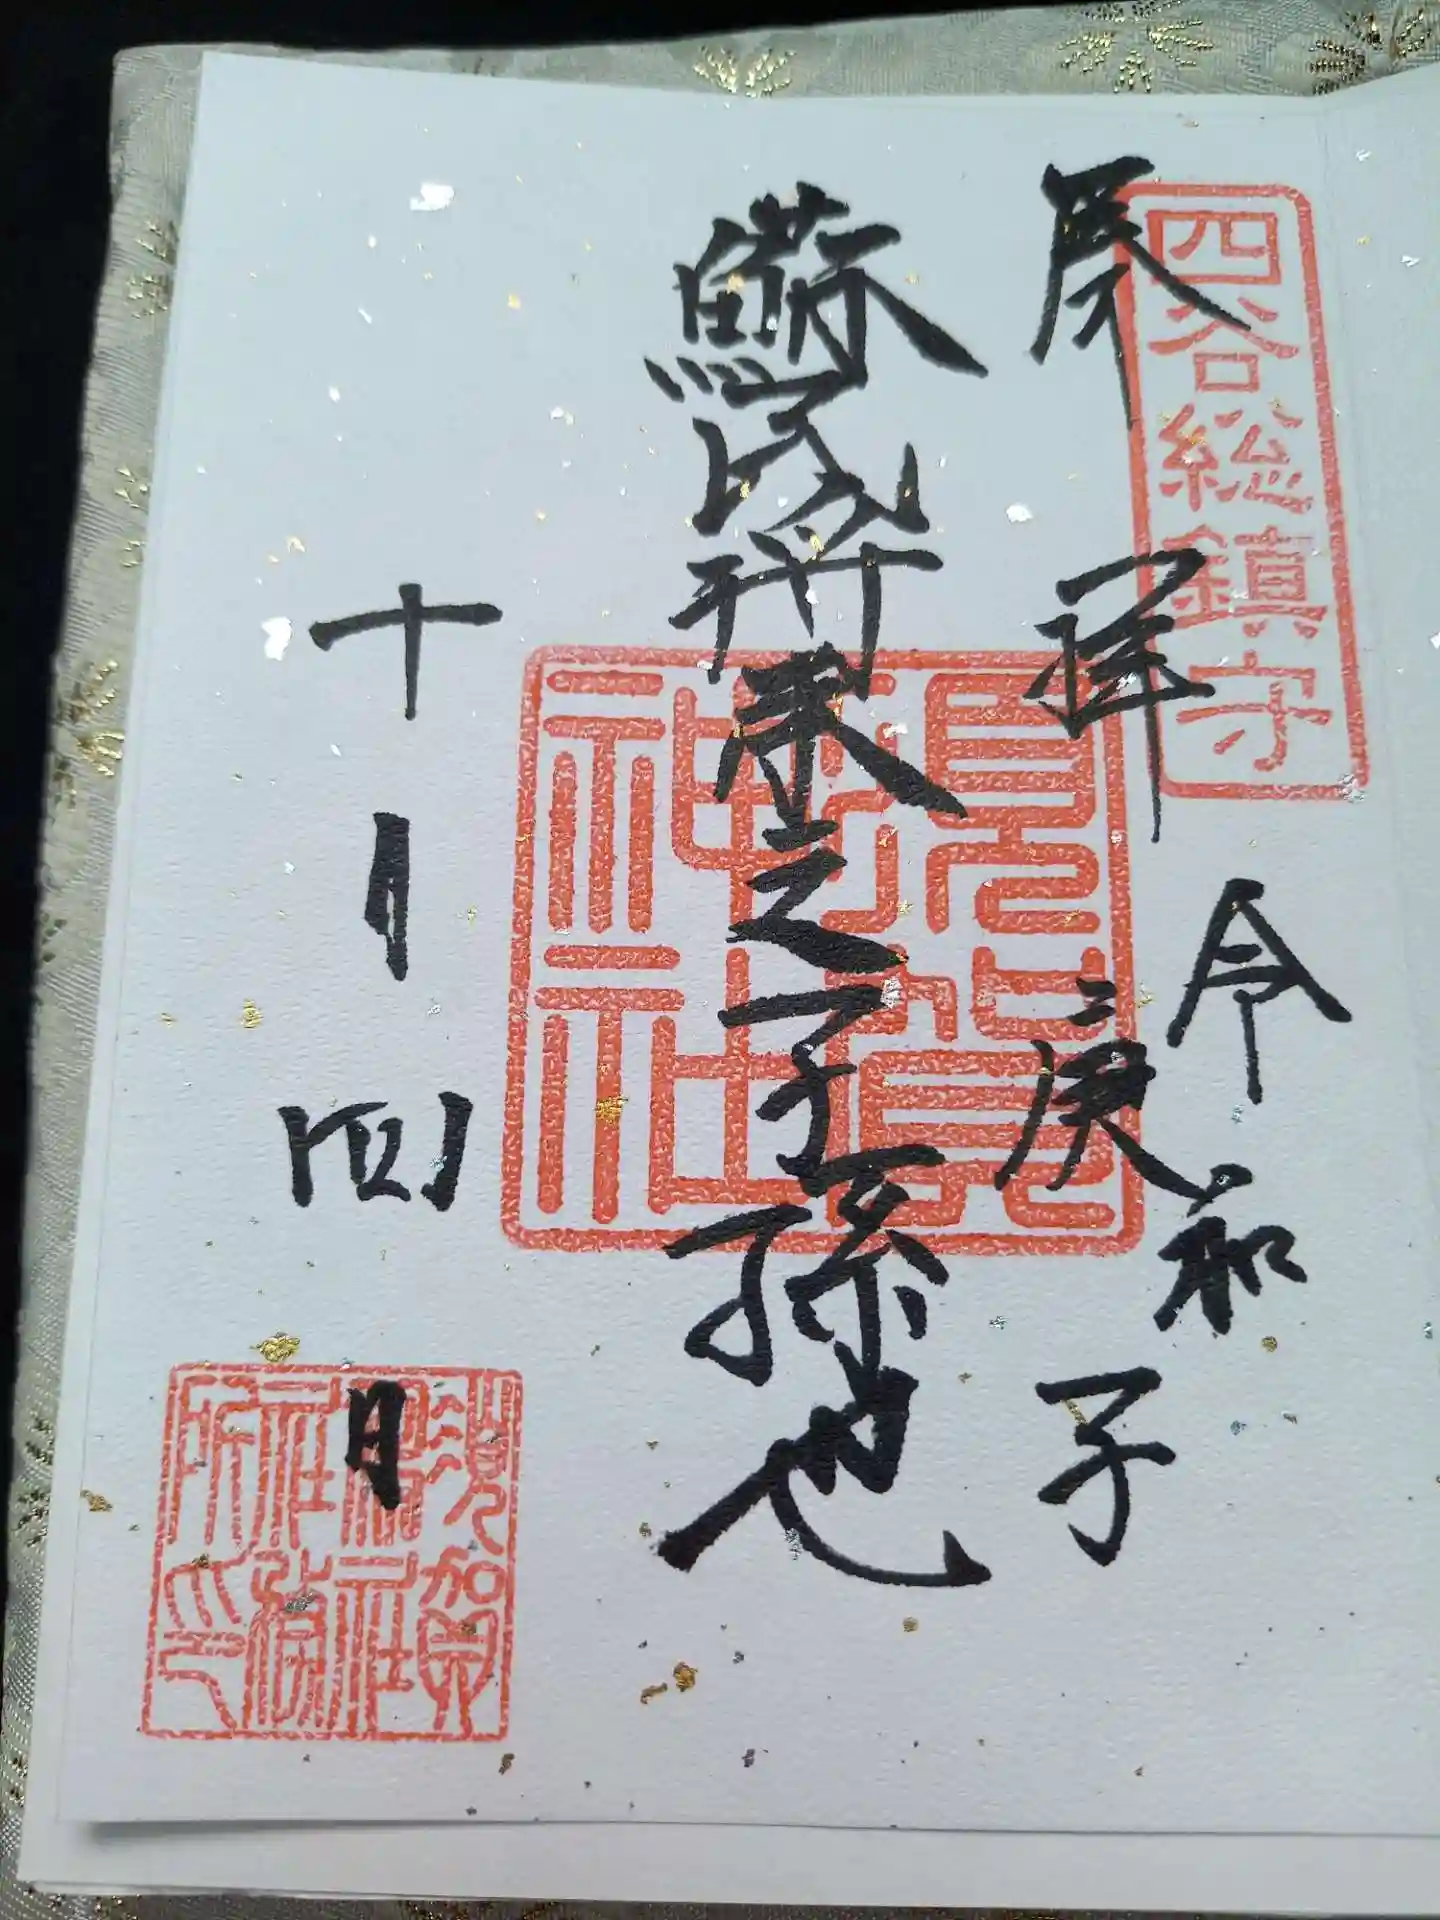 四谷総鎮守
奉拝
令和
二庚子
蘇民将来之子孫也
須賀神社
十月四日
須賀神社社務所